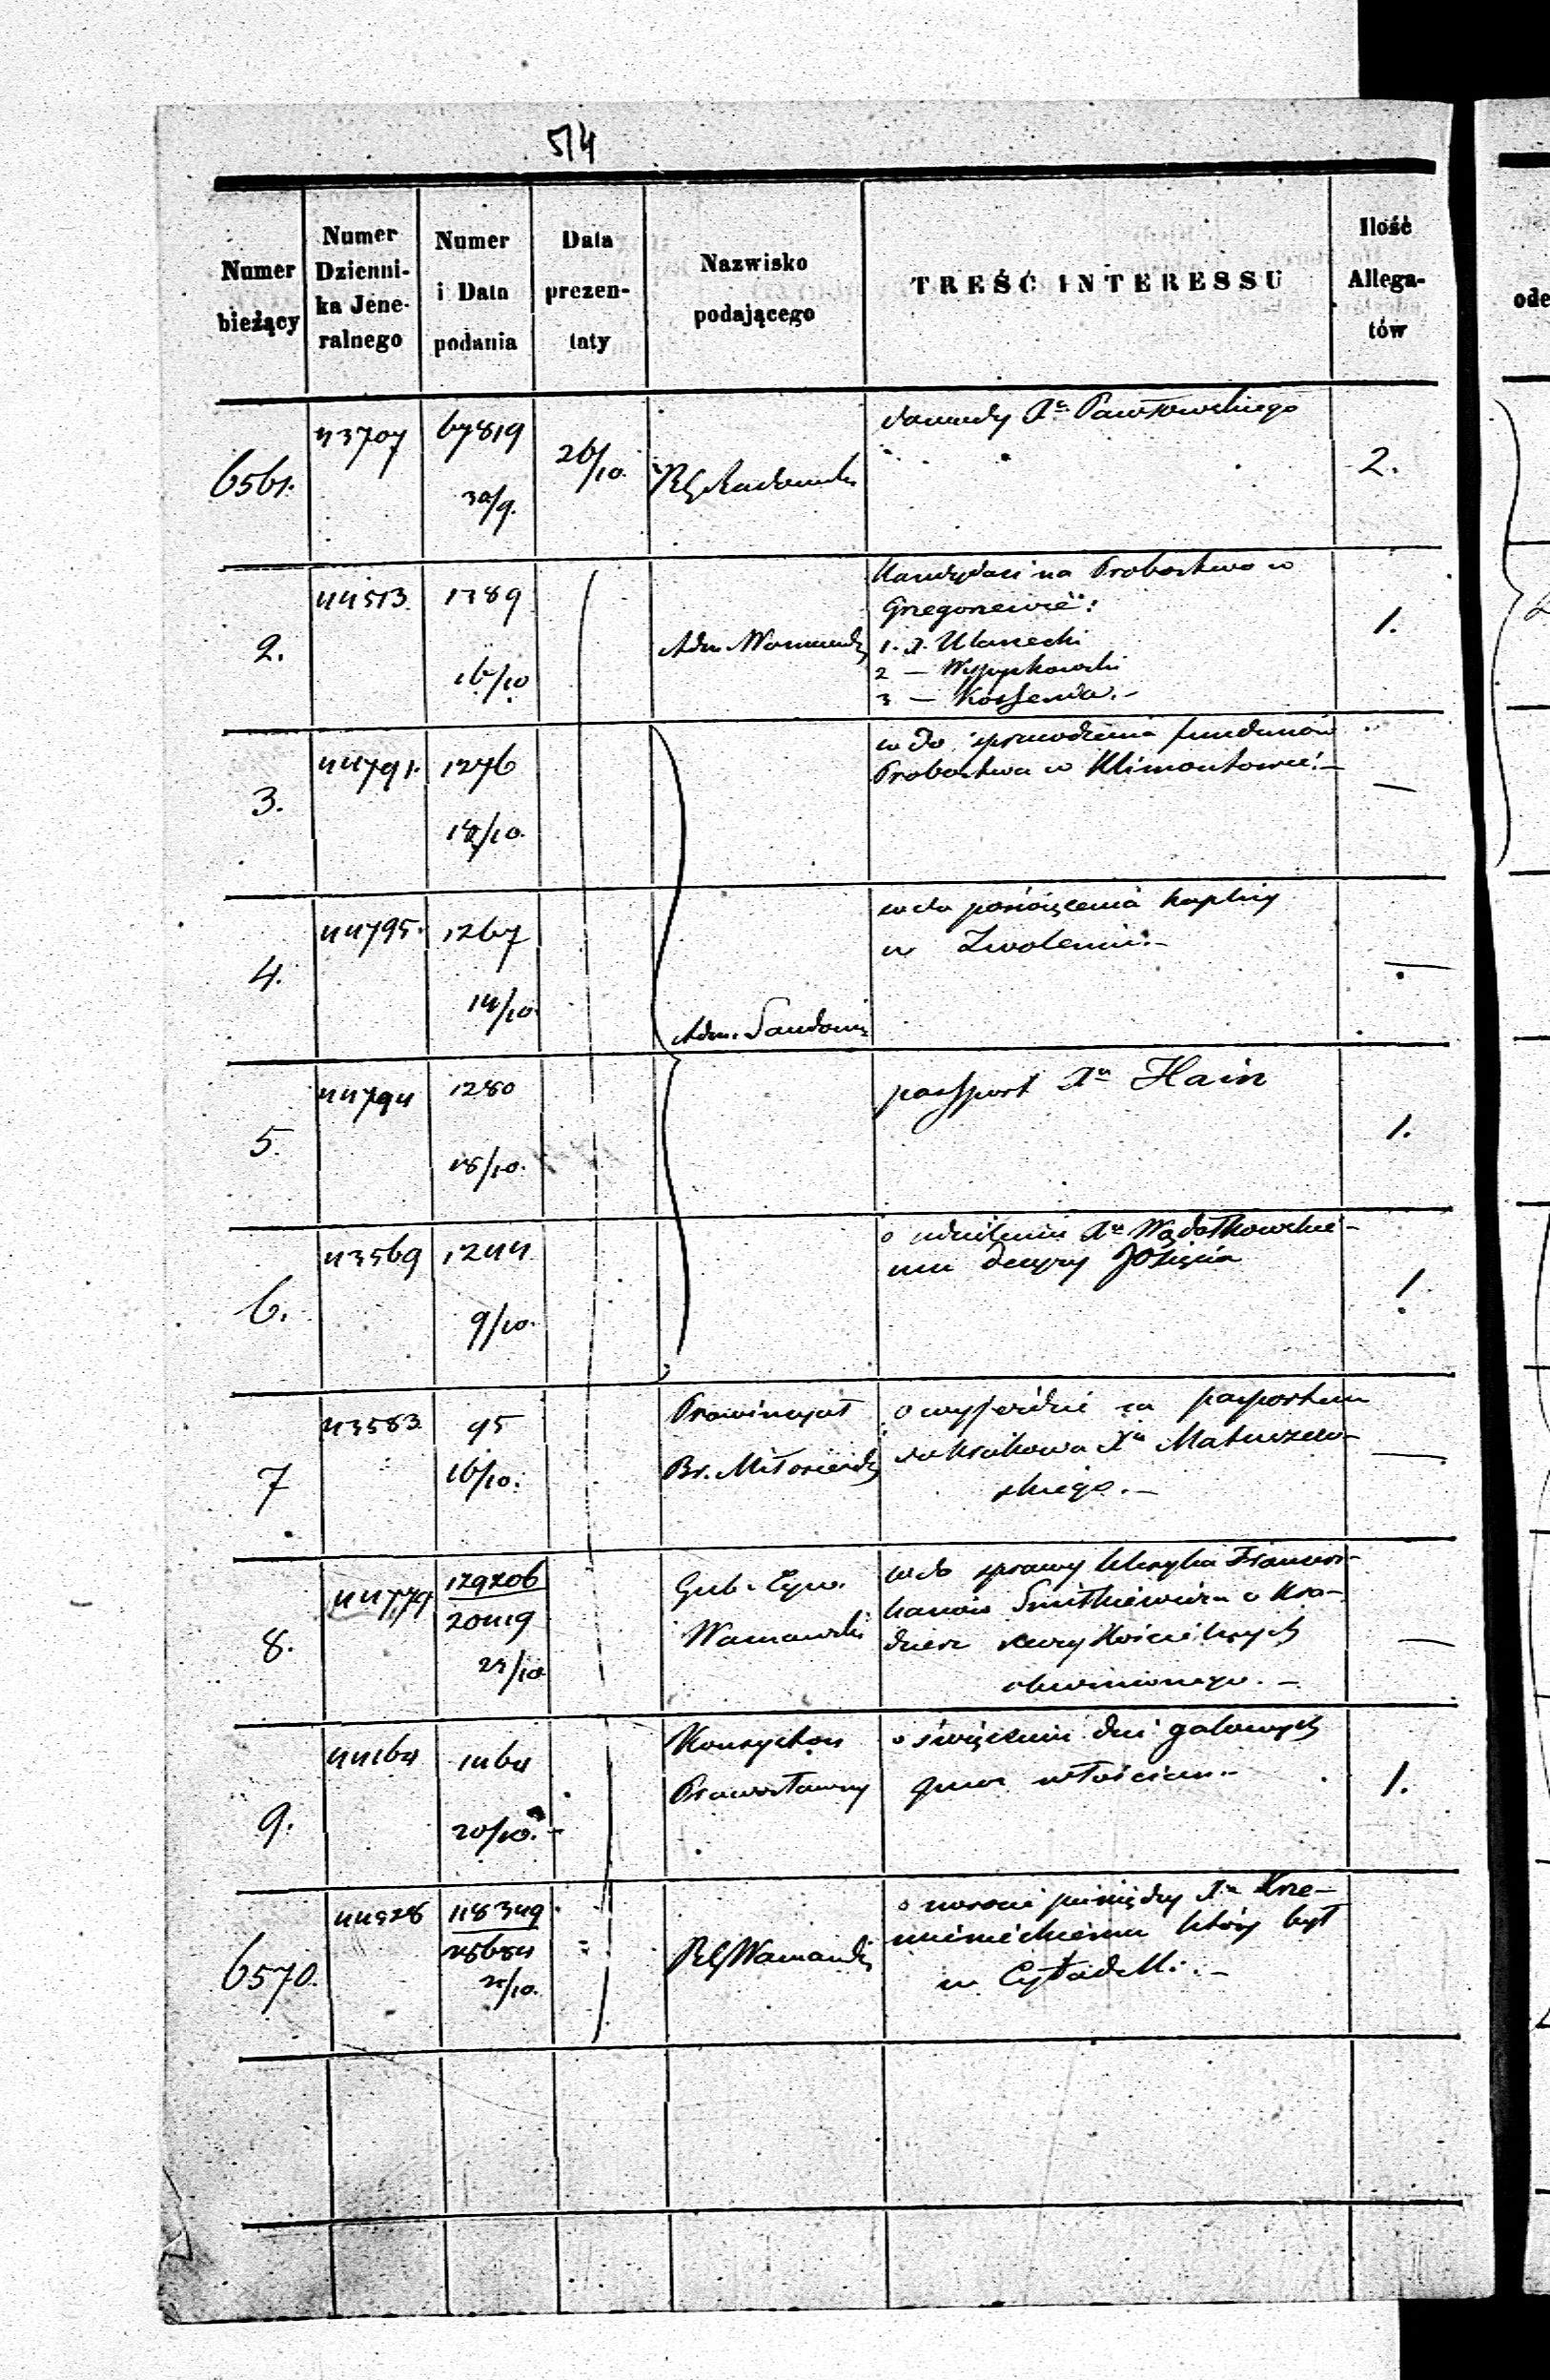 514
Numer bieżący
Numer Dzienni-ka Jene-ralnego
Numer i Data podania
Data prezen-taty
Nazwisko podającego
TREŚĆ INTERESSU
Ilość Allega-tów
6561. 43707 67819 30/9. 26/10. dowody Xa Pawłowskiego 2.
2. 44513. 1389 16/10 Adm. Warszawsk
Kandydaci na Probostwo w
Grzegorzewie:
1. X. Ulanecki
2 — Wysypkowski
3 — Kossenda.—
1.
3. 44791. 1276 14/10. w do sprawdzenia funduszów
Probostwa w Klimontowie.— —
4. 44795. 1267 14/10. Adm. Sandom
w do poświęcenia kaplicy
w Zwoleniu.— —
5. 44794 1280 18/10. passport Xa Hain 1.
6. 43569 1244 9/10.
o udzieleniu Xu Wądołkowskie-
mu 1.
7 43583. 95 16/10. Prowincyał
Br. Miłosierdz
o wyjeździe za pasportem
do Krakowa Xa Matuszew-
skiego.— —
8. 44779 129206 20419 25/10 Gub. Cyw.
Warszawski
w do sprawy Kleryka Francisz-
kanów o kra-
dzież rzeczy Kościelnych
obwinionego.— —
9. 44164 1464 20/10.— Konsystorz
Prawosławny
o święceniu dni galowych
przez włościan.— 1.
6570. 44928 118349 25/10. RG Warszawski
o zwrocie pieniędzy Xu Krze-
mienieckiemu który był
w Cytadelli.—
ode